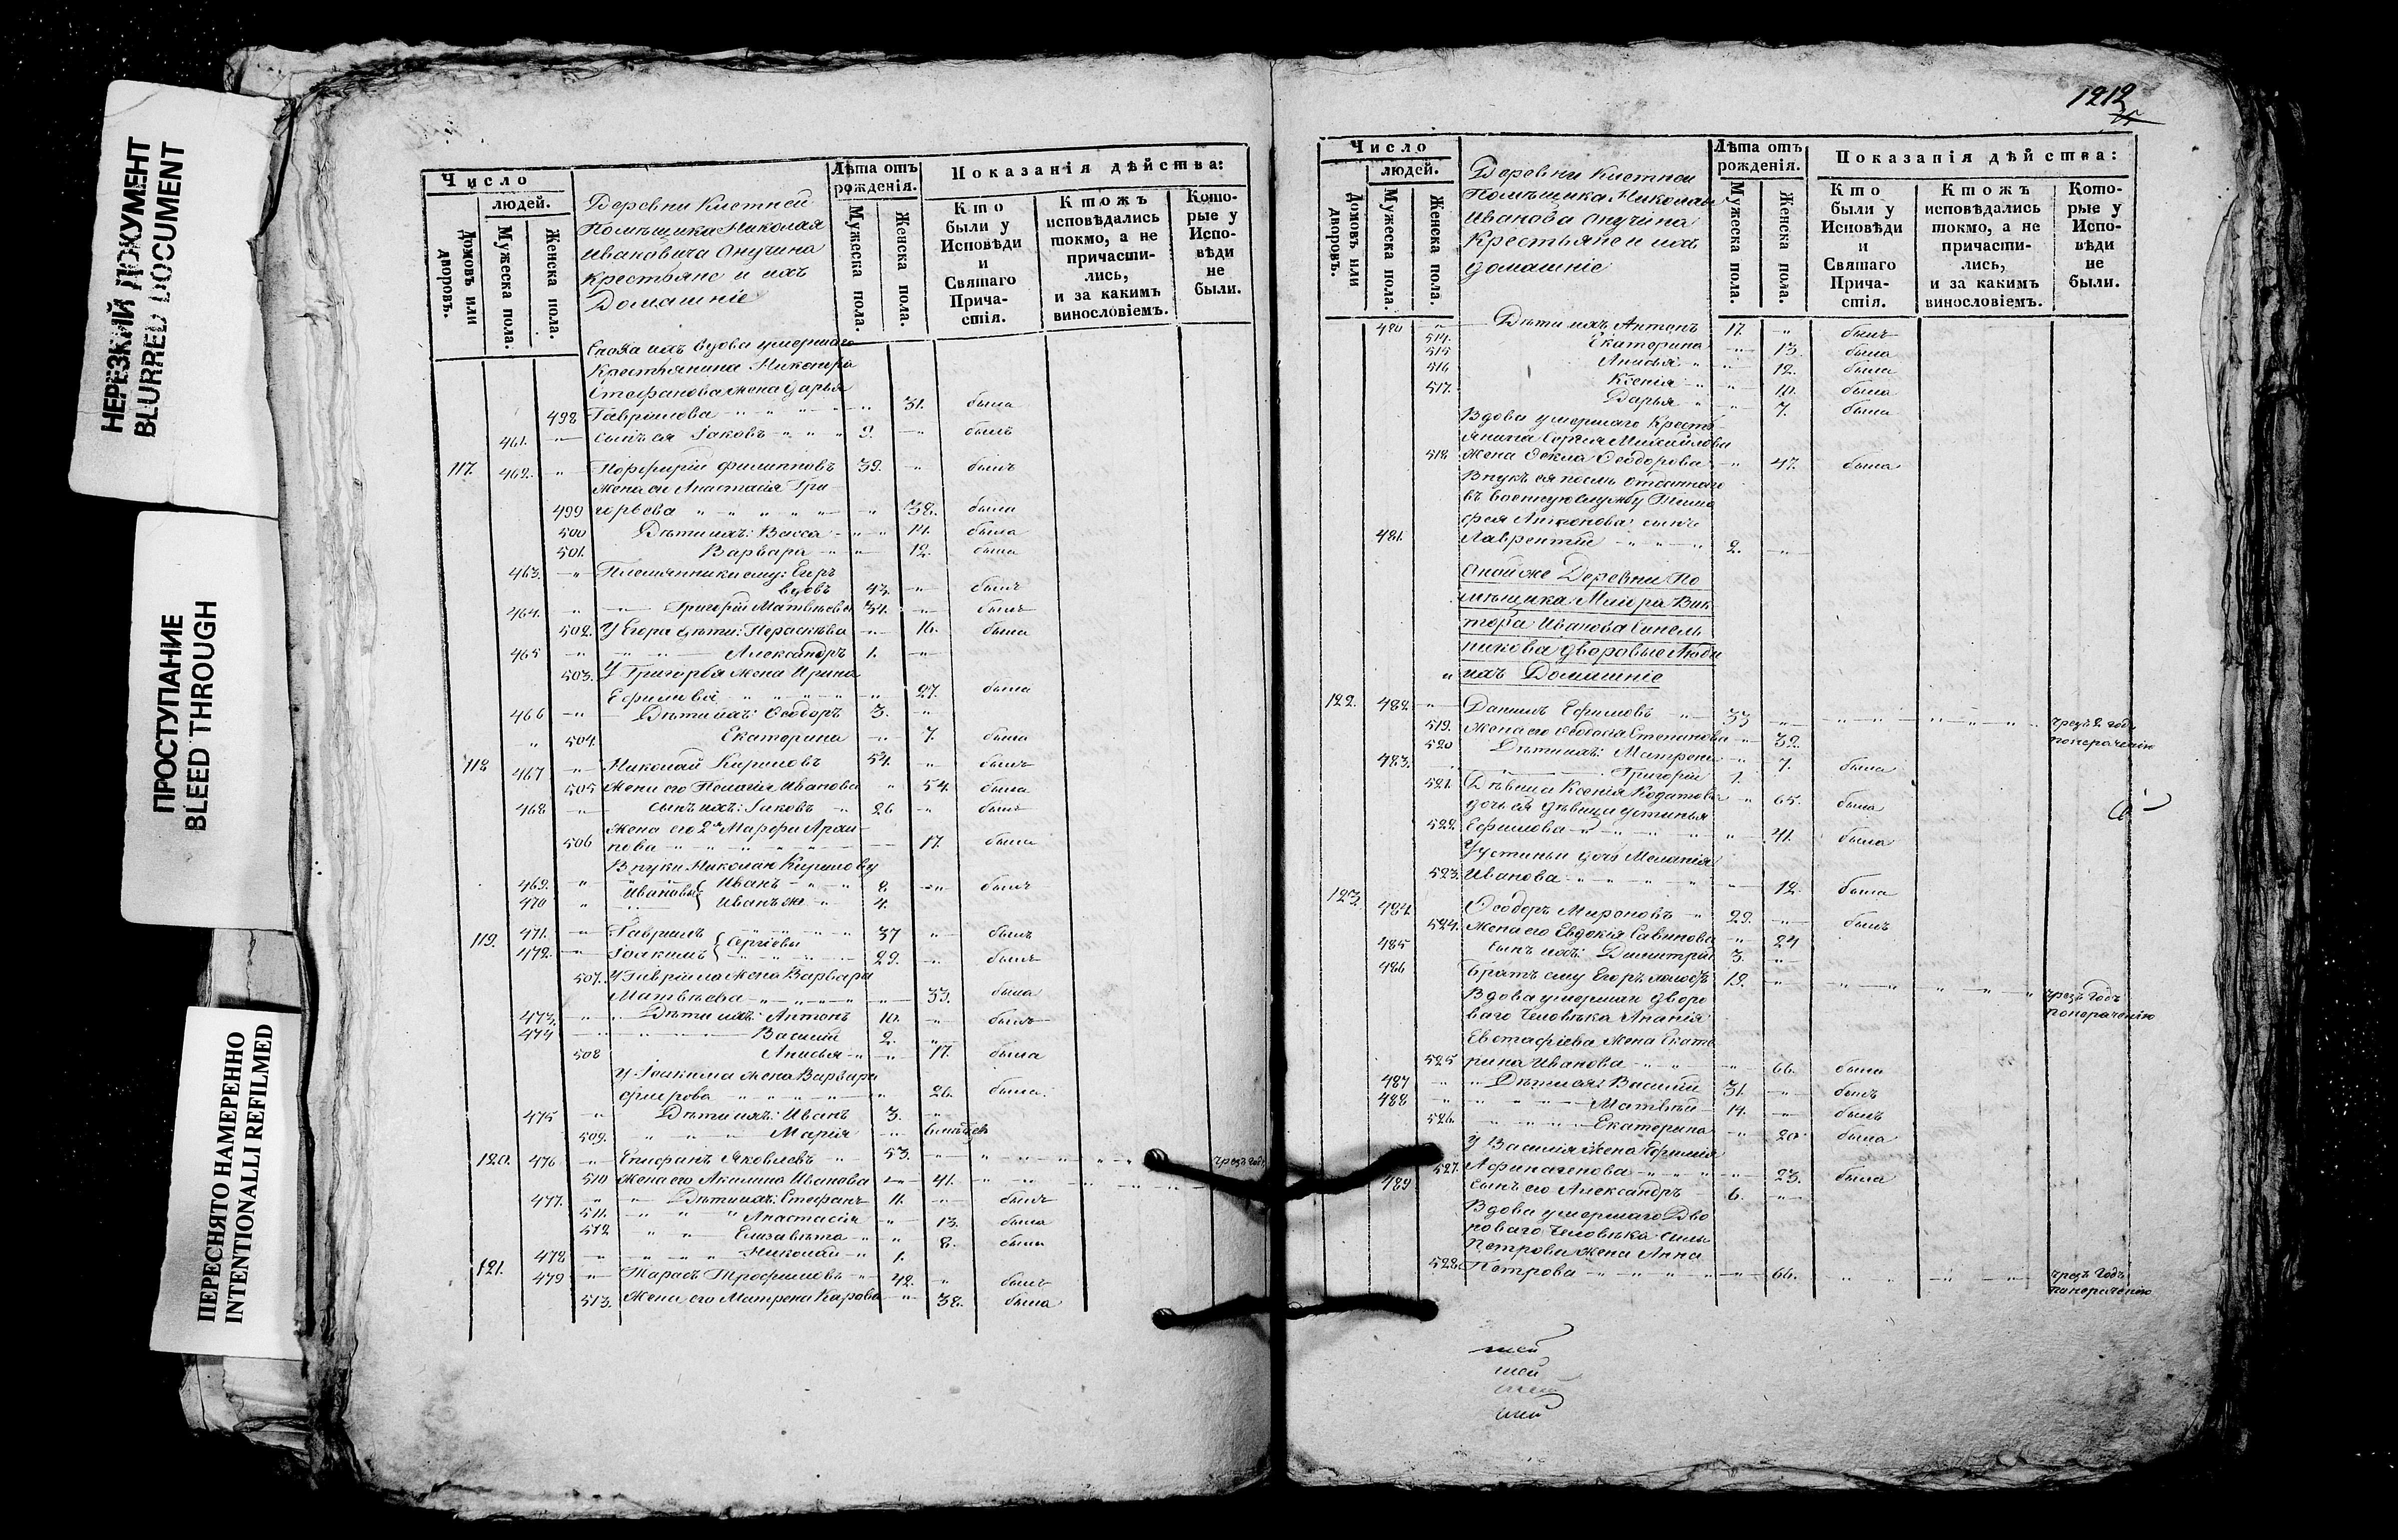 НЕРЕЗКИЙ ДОКУМЕНТ
BLURRED DOCUMENT
ПРОСТУПАНИЕ
BLEED THROUGH
ПЕРЕСНЯТО НАМЕРЕННО
INTENTIONALLI REFILMED
Число
людей.
Домовъ или дворовъ.
Мужеска пола.
Женска пола.
Деревни Клетней
Помѣщика Николая
Ивановича Онучина
крестьяне и ихъ
Домашніе
Лѣта отъ рожденія.
Мужеска пола.
Женска пола.
Показанія дѣйства:
Кто были у Исповѣди и Святаго Причастія.
Ктожъ исповѣдались токмо, а не причастились, и за какимъ винословіемъ.
Которые у Исповѣди не были.
Сноха ихъ вдова умершаго
Крестьянина Никонра
Стефанова жена Дарья
498 Гаврилова 31. была
461. сынъ ея Іаковъ 9. былъ
117. 462. Порфирій Филипповъ 39. былъ
Жена его Анастасія Гри
499 горьева 38. была
500 Дѣти ихъ: Васса 14. была
501. Варвара 12. была
463. Племянники ему: Егоръ
вдовъ 43. былъ
464. Григорій Матвѣевы 34. былъ
502. У Егора дѣти: Параскѣва 16. была
465 Александръ 1.
503. У Григорья жена Ирина
Ефимова 27. была
466 Дѣти ихъ: Ѳеодоръ 3.
504. Екатерина 7. была
118 467 Николай Кириловъ 54. былъ
505 Жена его Пелагія Иванова 54. была
468 сынъ ихъ: Іаковъ 26 былъ
Жена его 2я Марфа Архи-
506 пова 17. была
Внуки Николая Кирилову
469. Ивановы Иванъ 8. былъ
470 Иванъ же 4.
119. 471. Гаврилъ Сергіевы 37 былъ
472. Іоакимъ 29. былъ
507. У Гавріила жена Варвара
Матвѣева 33. была
473. Дѣти ихъ: Антонъ 10. былъ
474 Василій 2.
508 Анисья 17. была
У Іоакима жена Варвара
Фирова 26. была.
475 Дѣти ихъ: Иванъ 3.
509. Марія
120. 476 Епифанъ Яковлевъ 53. чрезъ годъ
510 Жена его Акилина Иванова 41.
477. Дѣти ихъ: Стефанъ 11. былъ
511. Анастасія 13. была
512 Елизавета 8. была
478 Николай 1.
121. 479 Тарасъ Трофимовъ 42. былъ
513. Жена его Матрена Карпова 38. была
1212
Число
людей.
Домовъ или дворовъ.
Мужеска пола.
Женска пола.
Деревни Клетней
Помѣщика Николая
Иванова Онучина
Крестьяне и ихъ
домашніе
Лѣта отъ рожденія.
Мужеска пола.
Женска пола.
Показанія дѣйства:
Кто были у Исповѣди и Святаго Причастія.
Ктожъ исповѣдались токмо, а не причастились, и за какимъ винословіемъ.
Которые у Исповѣди не были.
480 Дѣти ихъ Антонъ 17. былъ
514. Екатерина 13. была
515 Анисья 12. была
516 Ксенія 10. была
517. Дарья 7. была
Вдова умершаго Кресть
янина Сергея Михайлова
518 жена Ѳекла Ѳеодорова 47. была
Внукъ ея послѣ отданнаго
въ военную службу Тимо
фея Антонова сынъ
481. Лаврентій 2.
Оной же Деревни По
мѣщика Маіора Вик
тора Иванова Синель
никова дворовые Люди
ихъ Домашніе
122. 482. Данилъ Ефимовъ 33 чрезъ 2 годъ
519. Жена его Ѳеодосія Степанова 32. по нераченію
520 Дѣти ихъ: Матрена 7. была
483. Григорій 1.
521. Дѣвица Ксенія Кодатова 65. была
дочь ея дѣвица Устинья
522. Ефимова 41. была
У Устиньи дочь Меланія
523. Иванова 12. была
123. 484. Ѳеодоръ Мироновъ 29. былъ
524. Жена его Евдокія Савинова 24
485 Сынъ ихъ: Димитрій 3.
486 Братъ ему Егоръ холостъ 19. чрезъ годъ
Вдова умершаго дворо по нераченію
ваго Человѣка Ананія
Евстафіева жена Екате
525 рина Иванова 66. была
487 Дѣти ея: Василій 31. былъ
488 Матвѣй 14. былъ
526. Екатерина 20. была
У Василія жена Ефимія
527. Афиногенова 23. была
489 Сынъ его Александръ 6.
Вдова умершаго Дво
роваго Человѣка Силы
Петрова жена Анна
528. Петрова 66. чрезъ годъ
по нераченію